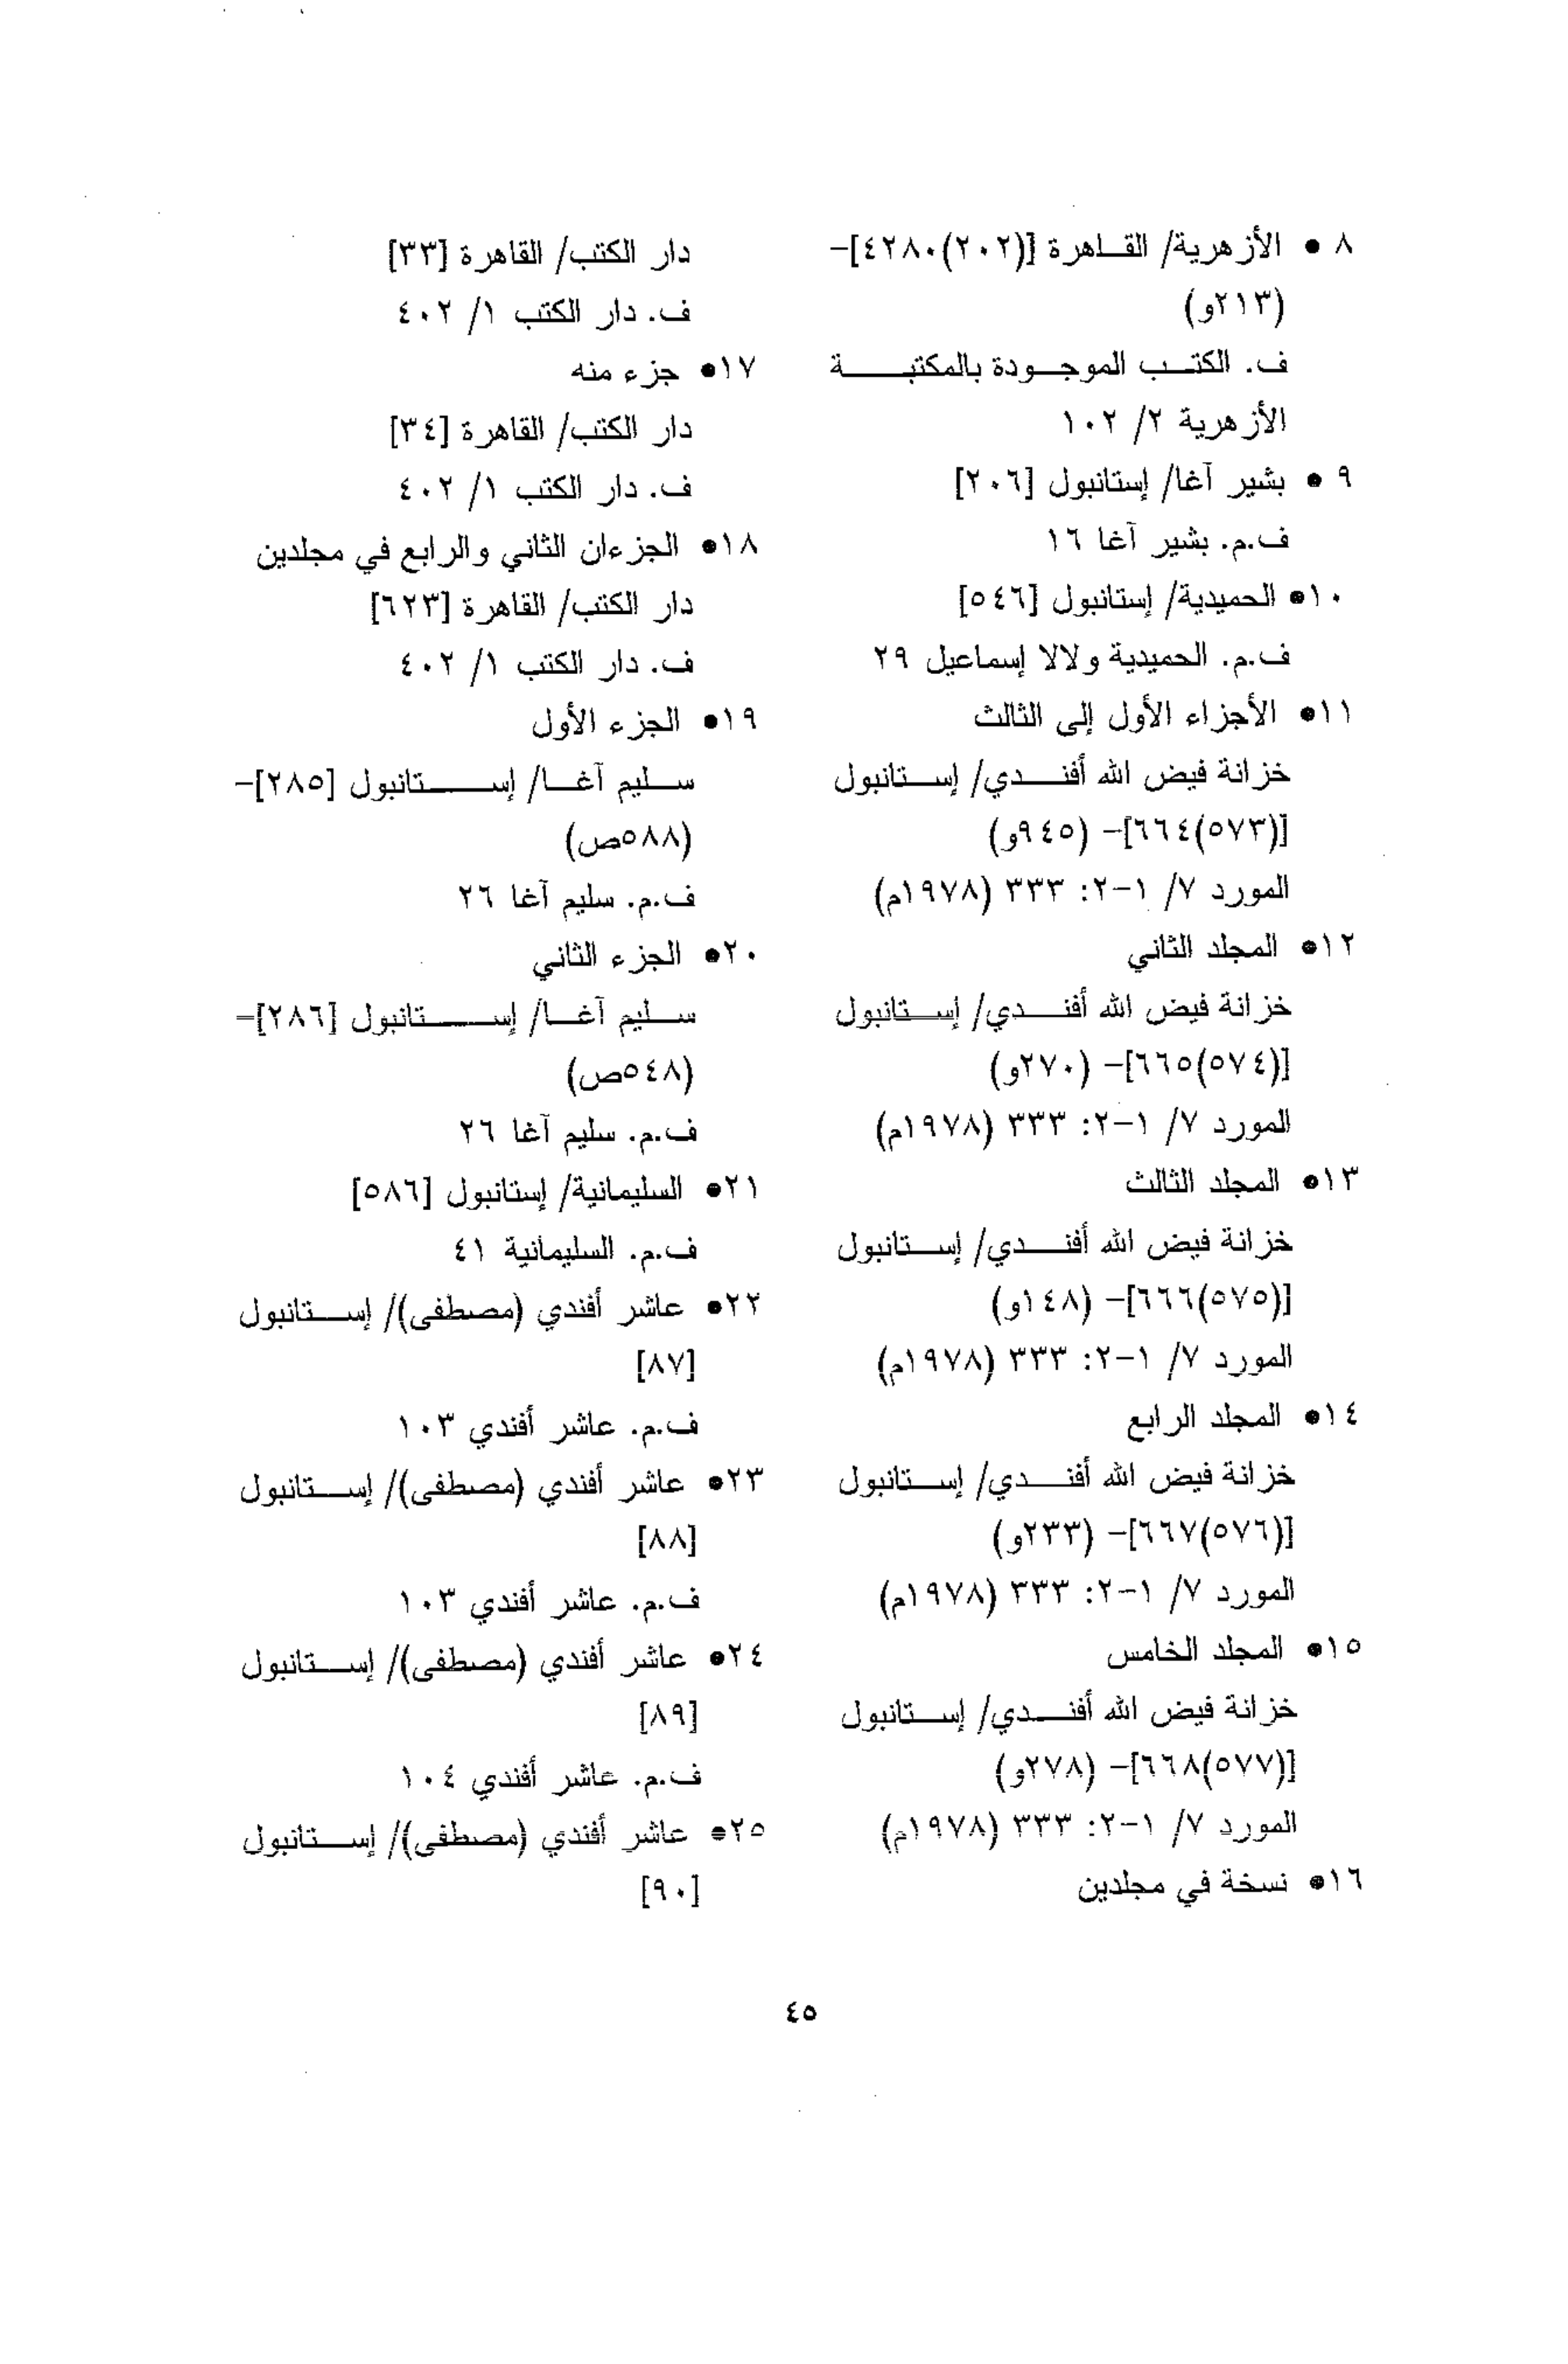 ٨ • الأزهرية/ القاهرة [(٢٠٢)٤٢٨٠]-
(٢١٣و)
ف. الكتب الموجودة بالمكتبة
الأزهرية ٢/ ١٠٢
٩ • بشير آغا/ إستانبول [٢٠٦]
ف.م. بشير آغا ١٦
١٠• الحميدية/ إستانبول [٥٤٦]
ف.م. الحميدية ولالا إسماعيل ٢٩
١١• الأجزاء الأول إلى الثالث
خزانة فيض الله أفندي/ إستانبول
[(٥٧٣)٦٦٤]- (٩٤٥و)
المورد ٧/ ١-٢: ٣٣٣ (١٩٧٨م)
١٢• المجلد الثاني
خزانة فيض الله أفندي/ إستانبول
[(٥٧٤)٦٦٥]- (٢٧٠و)
المورد ٧/ ١-٢: ٣٣٣ (١٩٧٨م)
١٣• المجلد الثالث
خزانة فيض الله أفندي/ إستانبول
[(٥٧٥)٦٦٦]- (١٤٨و)
المورد ٧/ ١-٢: ٣٣٣ (١٩٧٨م)
١٤• المجلد الرابع
خزانة فيض الله أفندي/ إستانبول
[(٥٧٦)٦٦٧]- (٢٣٣و)
المورد ٧/ ١-٢: ٣٣٣ (١٩٧٨م)
١٥• المجلد الخامس
خزانة فيض الله أفندي/ إستانبول
[(٥٧٧)٦٦٨]- (٢٧٨و)
المورد ٧/ ١-٢: ٣٣٣ (١٩٧٨م)
١٦• نسخة في مجلدين
دار الكتب/ القاهرة [٣٣]
ف. دار الكتب ١/ ٤٠٢
١٧• جزء منه
دار الكتب/ القاهرة [٣٤]
ف. دار الكتب ١/ ٤٠٢
١٨• الجزءان الثاني والرابع في مجلدين
دار الكتب/ القاهرة [٦٢٣]
ف. دار الكتب ١/ ٤٠٢
١٩• الجزء الأول
سليم آغا/ إستانبول [٢٨٥]-
(٥٨٨ص)
ف.م. سليم آغا ٢٦
٢٠• الجزء الثاني
سليم آغا/ إستانبول [٢٨٦]-
(٥٤٨ص)
ف.م. سليم آغا ٢٦
٢١• السليمانية/ إستانبول [٥٨٦]
ف.م. السليمانية ٤١
٢٢• عاشر أفندي (مصطفى)/ إستانبول
[٨٧]
ف.م. عاشر أفندي ١٠٣
٢٣• عاشر أفندي (مصطفى)/ إستانبول
[٨٨]
ف.م. عاشر أفندي ١٠٣
٢٤• عاشر أفندي (مصطفى)/ إستانبول
[٨٩]
ف.م. عاشر أفندي ١٠٤
٢٥• عاشر أفندي (مصطفى)/ إستانبول
[٩٠]
٤٥